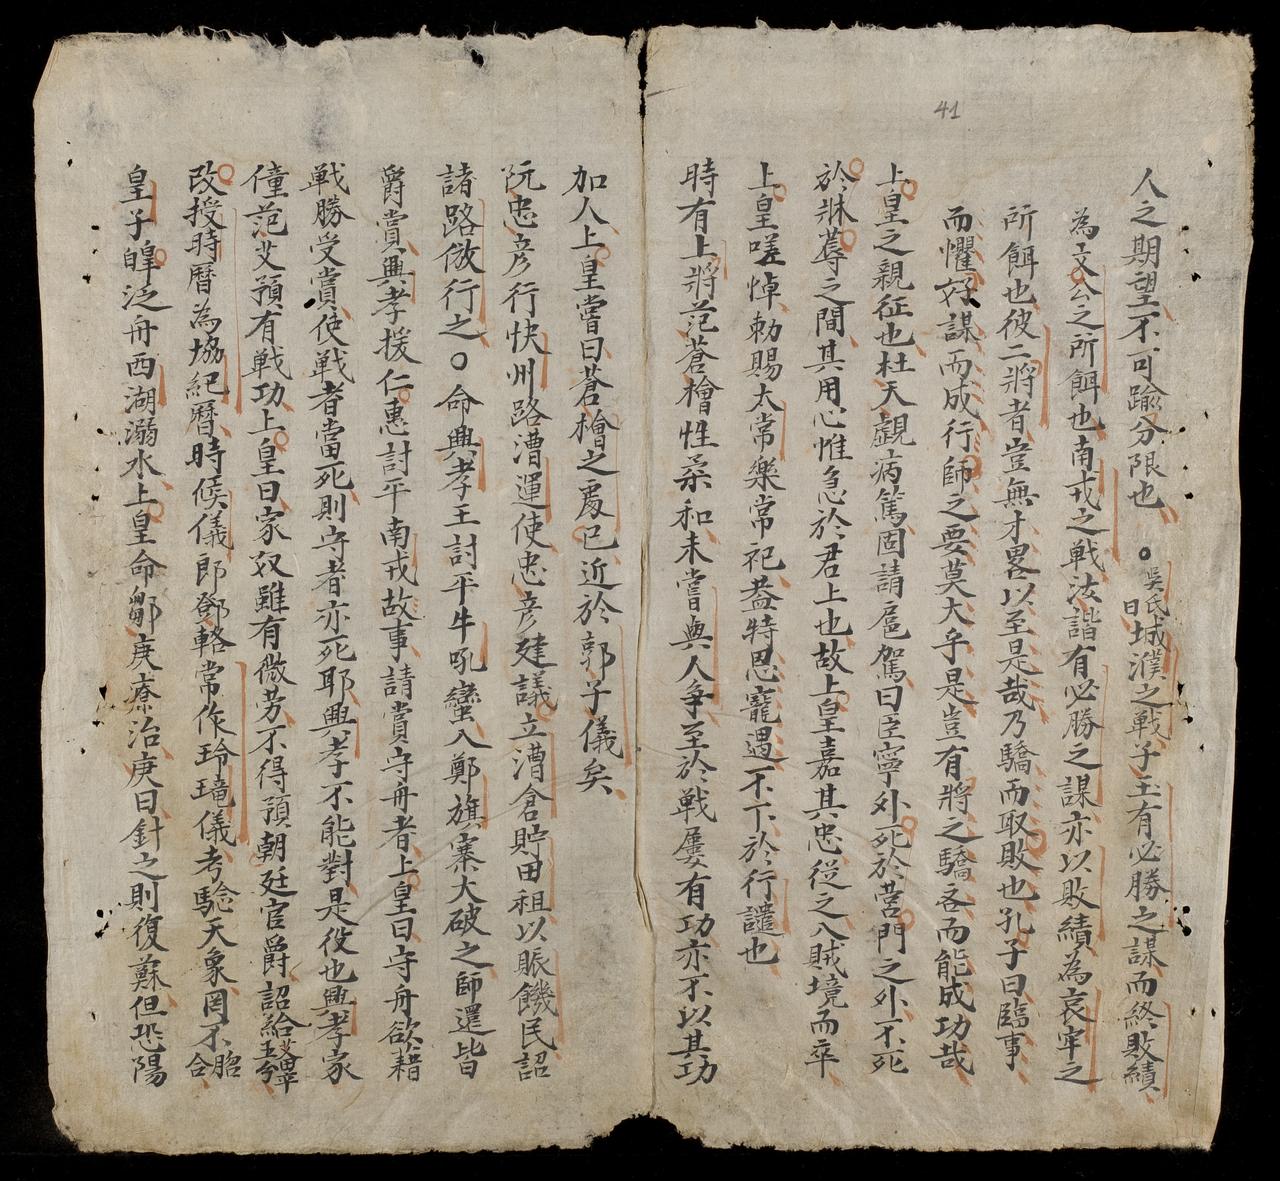 41
人之期望不可踰分限也 ○吳氏曰城濮之戰子玉有必勝之謀而終敗績
為文公之所餌也南戎之戰法諧有必勝之謀亦以敗績為哀牢之
所餌也彼二將者豈無才畧以至是哉乃驕而取敗也孔子曰臨事
而懼好謀而成行師之要莫大乎是豈有將之驕吝而能成功哉
上皇之親征也杜天覷病篤固請扈駕曰臣寧外死於營門之外不死
於牀蓐之間其用心惟急於君上也故上皇嘉其忠從之入賊境而卒
上皇嗟悼勅賜太常樂常祀葢特恩寵遇不下於行譴也
時有上將范蒼檜性柔和未嘗與人爭至於戰屢有功亦不以其功
加人上皇嘗曰蒼檜之處已近於郭子儀矣
阮忠彥行快州路漕運使忠彥建議立漕倉貯田租以賑饑民詔
諸路倣行之○命興孝王討平牛吼蠻入鄭旗寨大破之師還皆
爵賞興孝援仁惠討平南戎故事請賞守舟者上皇曰守舟欲藉
戰勝受賞使戰者當死則守者亦死耶興孝不能對是役也興孝家
僮范艾預有戰功上皇曰家奴雖有微劳不得預朝廷官爵詔給艾田平五分
改授時曆為協紀曆時候儀郎鄧輅常作玲瓏儀考驗天象罔不脗合
皇子皥泛舟西湖溺水上皇命鄒庚療治庚曰針之則復蘇但恐陽